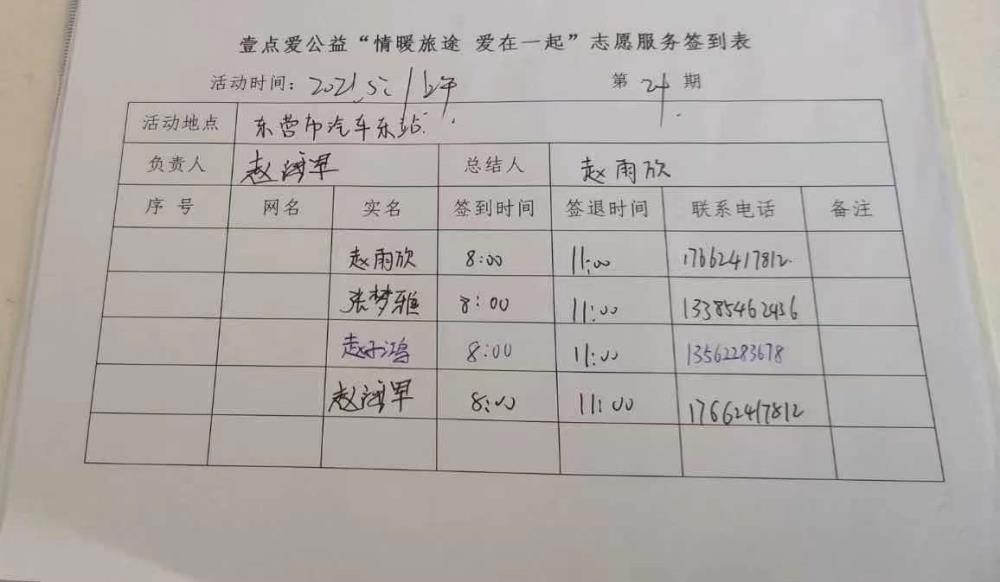 壹点爱公益“情暖旅途 爱在一起”志愿服务签到表
活动时间: 2021.5. 上午 第 24 期
活动地点 东营市汽车东站
负责人 赵海军 总结人 赵雨欣
序号 网名 实名 签到时间 签退时间 联系电话 备注
赵雨欣 8:00 11:00 17662417812
张梦雅 8:00 11:00 13385462436
赵子鸿 8:00 11:00 13562283678
赵海军 8:00 11:00 17662417812